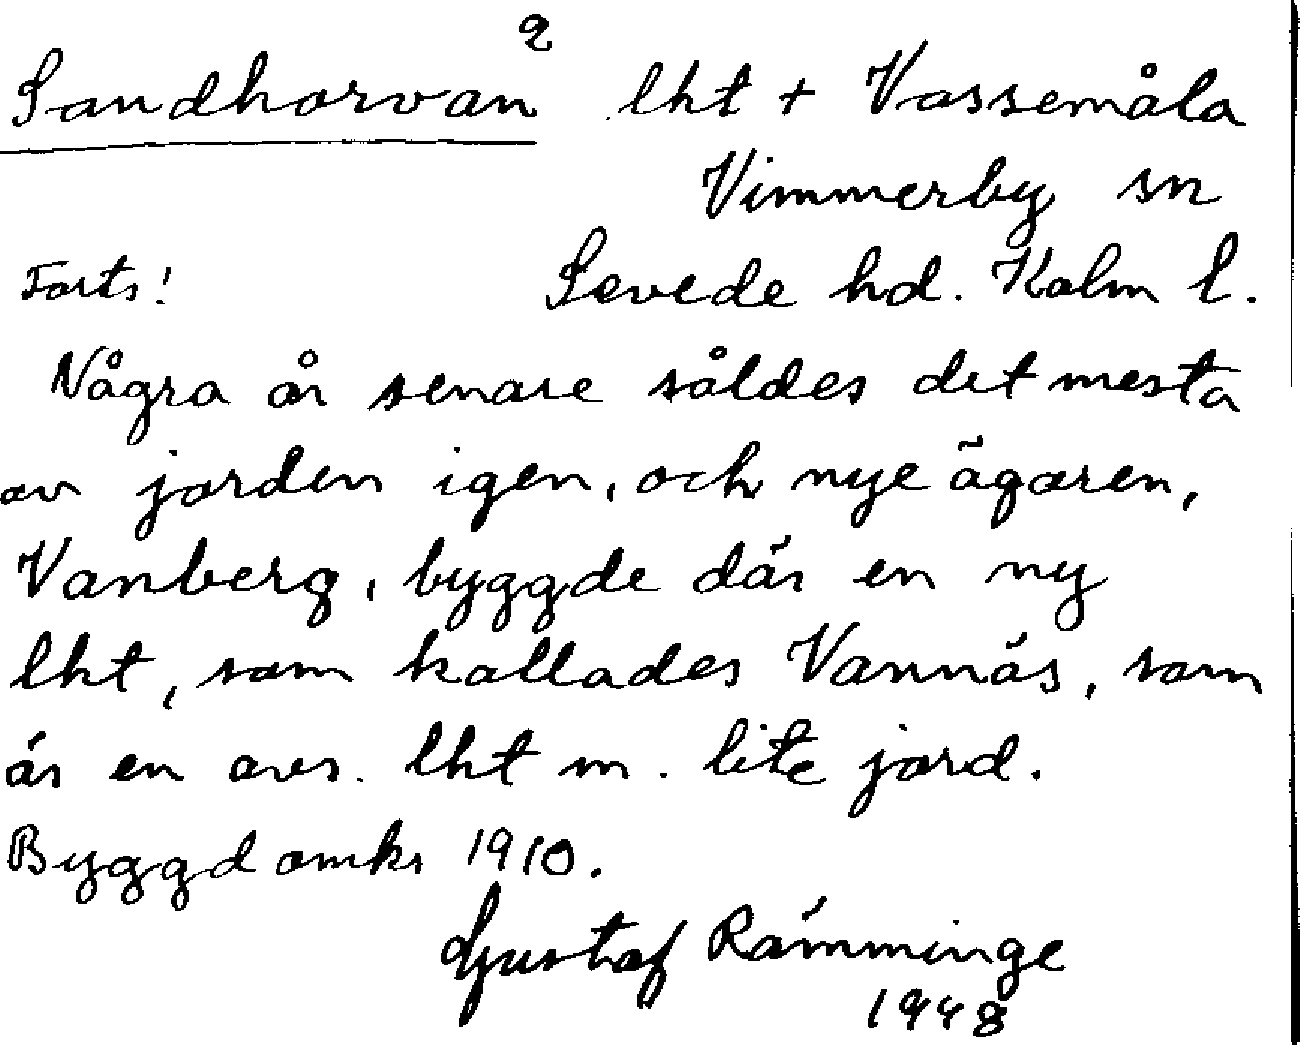 2
Sandhorvan lht + Vassemåla
Vimmerby sn
Forts! Sevede hd. Kalm l.
Några år senare såldes det mesta
av jorden igen, och nye ägaren,
Vanberg, byggde där en ny
lht, som kallades Vannäs, som
är en avs. lht m. lite jord.
Byggd omkr 1910.
Gustaf Rämminge
1948